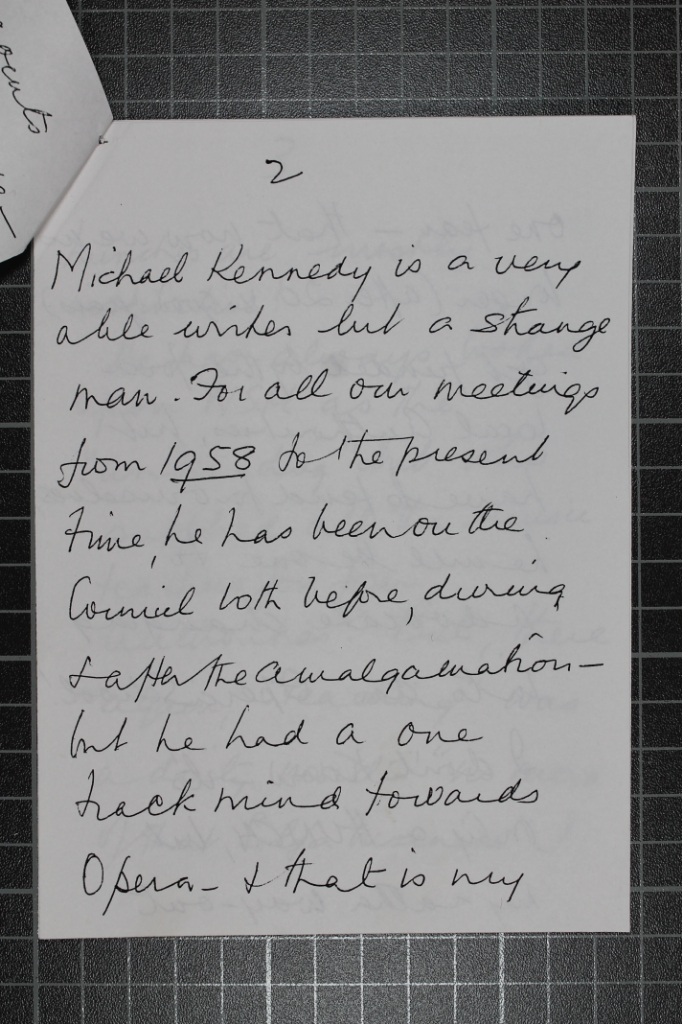 2
Michael Kennedy is a very
able writer but a strange
man. For all our meetings
from 1958 to the present
time, he has been on the
Council both before, during
& after the amalgamation –
but he had a one
track mind towards
Opera – & that is my